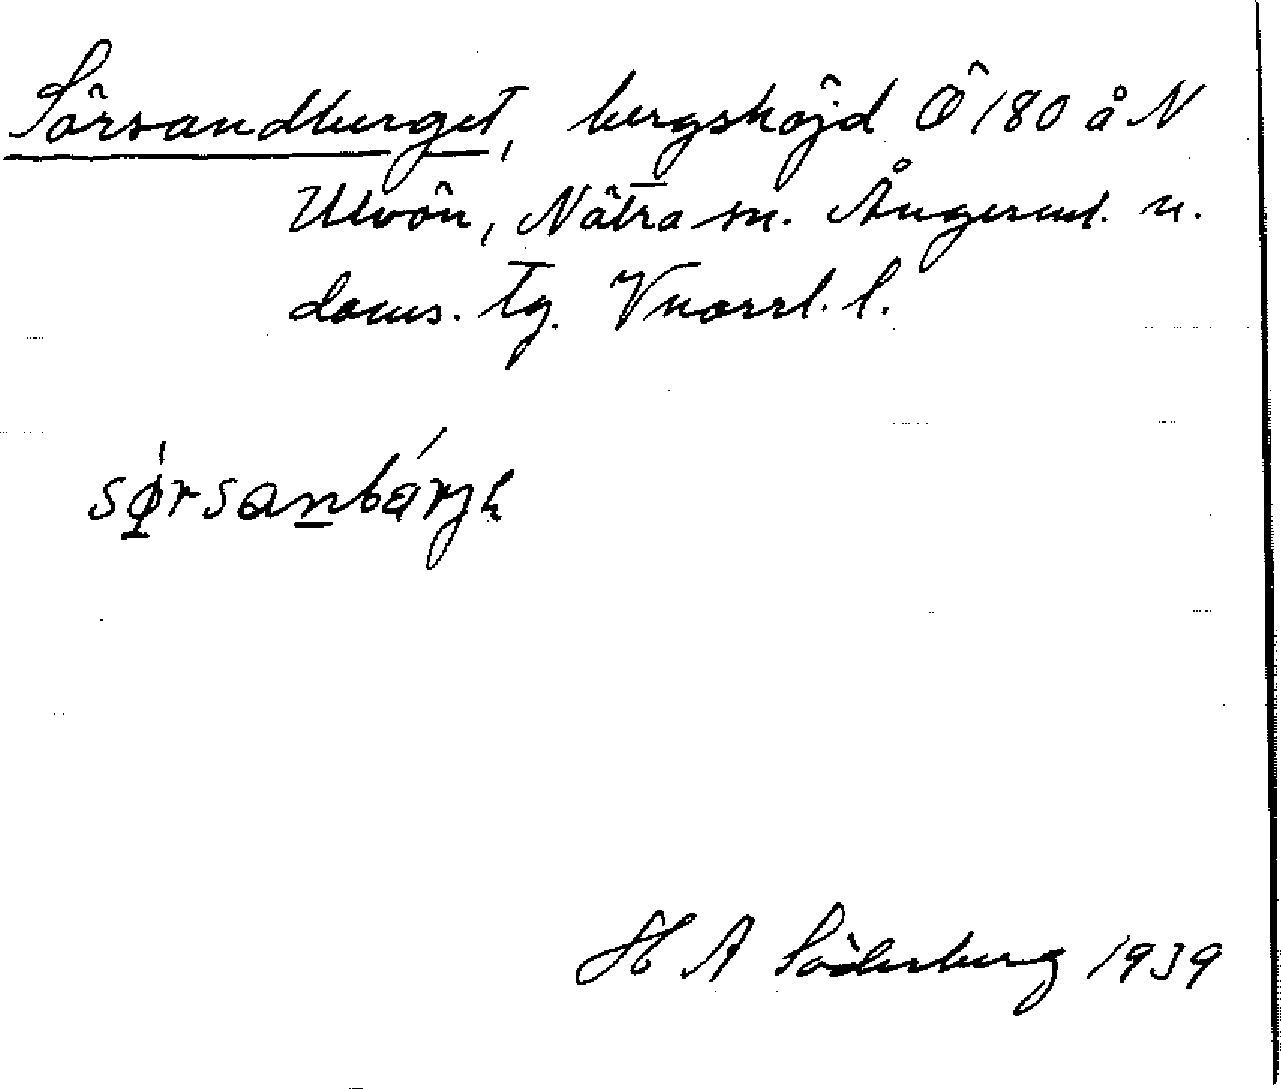 Sörsandberget, bergshöjd Ö 180 å N
Ulvön, Nätra sn. Ångerml. n.
doms. tg. Vnorrl. l.
sørsanbárjh
H A Söderberg 1939